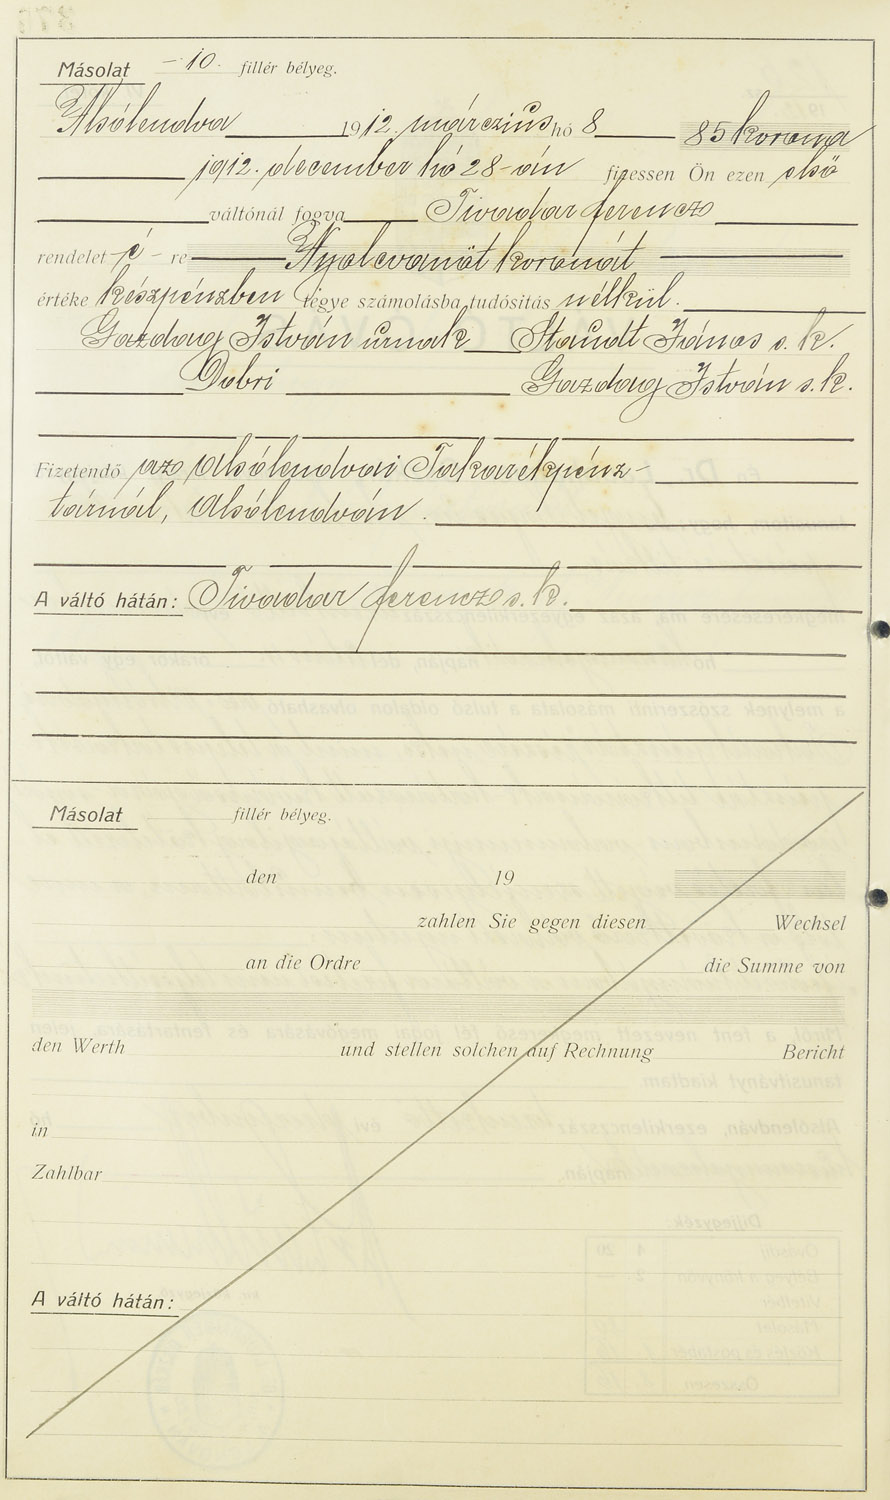 Másolat – 10. fillér bélyeg.
Alsólendva 1912. márczius hó 8 85 korona
1912. december hó 28-án fizessen Ön ezen első
váltónál fogva Tivadar Ferencz
rendelet é – re Nyolcvanöt koronát
értéke készpénzben tegye számolásba tudósitás nélkül.
Gazdag István úrnak Staudt János s. k.
Dobri Gazdag István s. k.
Fizetendő az Alsólendvai Takarékpénz-
tárnál, Alsólendván.
A váltó hátán: Tivadar Ferencz s. k.
Másolat fillér bélyeg.
den 19
zahlen Sie gegen diesen Wechsel
an die Ordre die Summe von
den Werth und stellen solchen auf Rechnung Bericht
in
Zahlbar
A váltó hátán: